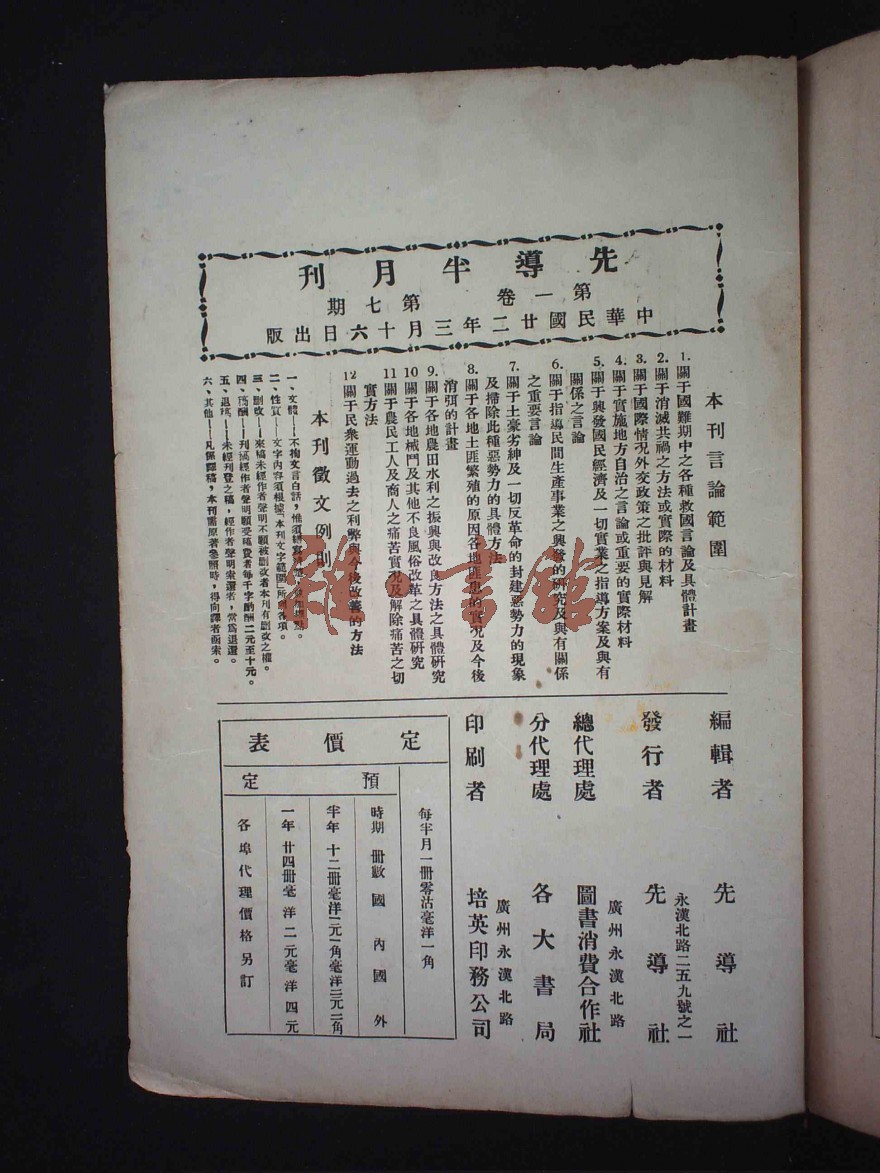 先導半月刊
第一卷 第七期
中華民國廿二年三月十六日出版
本刊言論範圍
1. 關于國難期中之各種救國言論及具體計畫
2. 關于消滅共禍之方法或實際的材料
3. 關于國際情况外交政策之批評與見解
4. 關于實施地方自治之言論或重要的實際材料
5. 關于興發國民經濟及一切實業之指導方案及與有
關係之言論
6. 關于指導民間生產事業之興發的研究及與有關係
之重要言論
7. 關于土豪劣紳及一切反革命的封建惡勢力的現象
及掃除此種惡勢力的具體方法
8. 關于各地土匪繁殖的原因各地匪患的實况及今後
消弭的計畫
9. 關于各地農田水利之振興與改良方法之具體研究
10 關于各地械鬥及其他不良風俗改革之具體研究
11 關于農民工人及商人之痛苦實况及解除痛苦之切
實方法
12 關于民衆運動過去之利弊與今後改善的方法
本刊徵文例則
一、文體——不拘文言白話，惟須
二、性質——文字內容須根據「本刊文字範圍」所列各項。
三、刪改——來稿未經作者聲明不願被刪改者本刊有刪改之權。
四、稿酬——刊稿經作者聲明願受稿費者每千字酌酬二元至十元。
五、退稿——未經刊登之稿，經作者聲明索還者，當爲退還。
六、其他——凡係譯稿，本刊需原著參照時，得向譯者函索。
編輯者 先導社
永漢北路二五九號之一
發行者 先導社
廣州永漢北路
總代理處 圖書消費合作社
分代理處 各大書局
廣州永漢北路
印刷者 培英印務公司
定價表
每半月一冊零沽毫洋一角
預定
時期 冊數 國內 國外
半年 十二冊 毫洋一元一角 毫洋二元二角
一年 廿四冊 毫洋二元 毫洋四元
各埠代理價格另訂
雅·書館